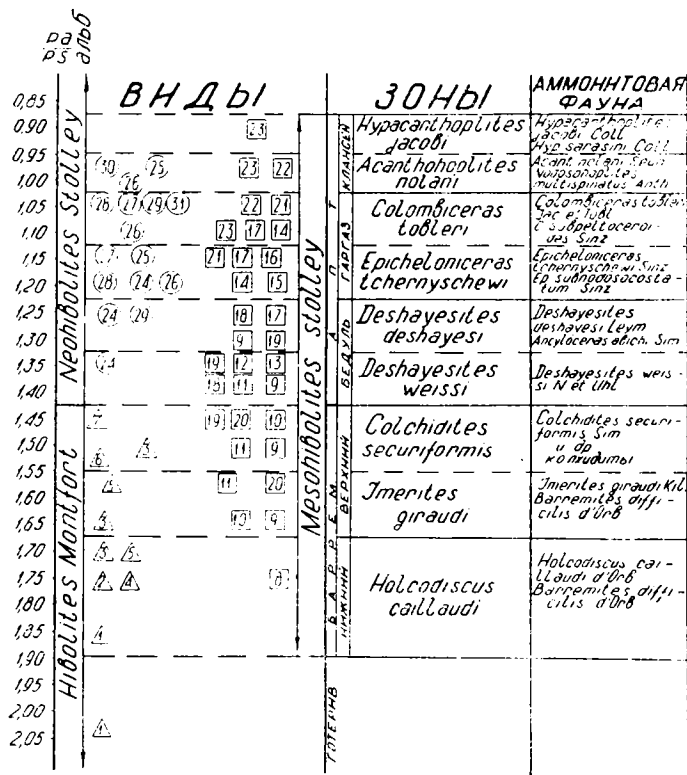 ра
ps
альб
ВИДЫ
ЗОНЫ
АММОНИТОВАЯ
ФАУНА
0,85
0,90
0,95
1,00
1,05
1,10
1,15
1,20
1,25
1,30
1,35
1,40
1,45
1,50
1,55
1,60
1,65
1,70
1,75
1,80
1,85
1,90
1,95
2,00
2,05
Neohibolites Stolley
Hibolites Montfort
23
30 25 23 22
26
28 27 29 31 22 21
26 23 17 14
25 21 17 16
28 24 26 14 15
24 29 18 17
9 19
24 19 12 13
18 11 9
19 20 10
6 5 11 9
11 20
3 10 9
3 5
2 4 8
1
1
Mesohibolites stolley
АПТ
КЛАНСЕЙ
ГАРГАЗ
БЕДУЛЬ
БАРРЕМ
ВЕРХНИЙ
НИЖНИЙ
ГОТЕРИВ
Hypacanthoplites
jacobi
Acanthohoplites
nolani
Colombiceras
tobleri
Epicheloniceras
tchernyschewi
Deshayesites
deshayesi
Deshayesites
weissi
Colchidites
securiformis
Imerites
giraudi
Holcodiscus
caillaudi
Hypacanthoplites
jacobi Coll
Hyp sarasini Coll
Acant nolani Seun
multispinatus Anth
Colombiceras tobleri
Jac et Tobl
C subpeltoceroi-
des Sinz
Epicheloniceras
tchernyschewi Sinz
Ep subnodosocosta-
tum Sinz
Deshayesites
deshayesi Leym
Ancyloceras abich. Sim
Deshayesites weis-
si N et Uhl
Colchidites securi-
formis Sim
и др
колхидиты
Imerites giraudi Kil.
Barremites diffi-
cilis d'Orb
Holcodiscus cai-
llaudi d'Orb
Barremites diffi-
cilis d'Orb